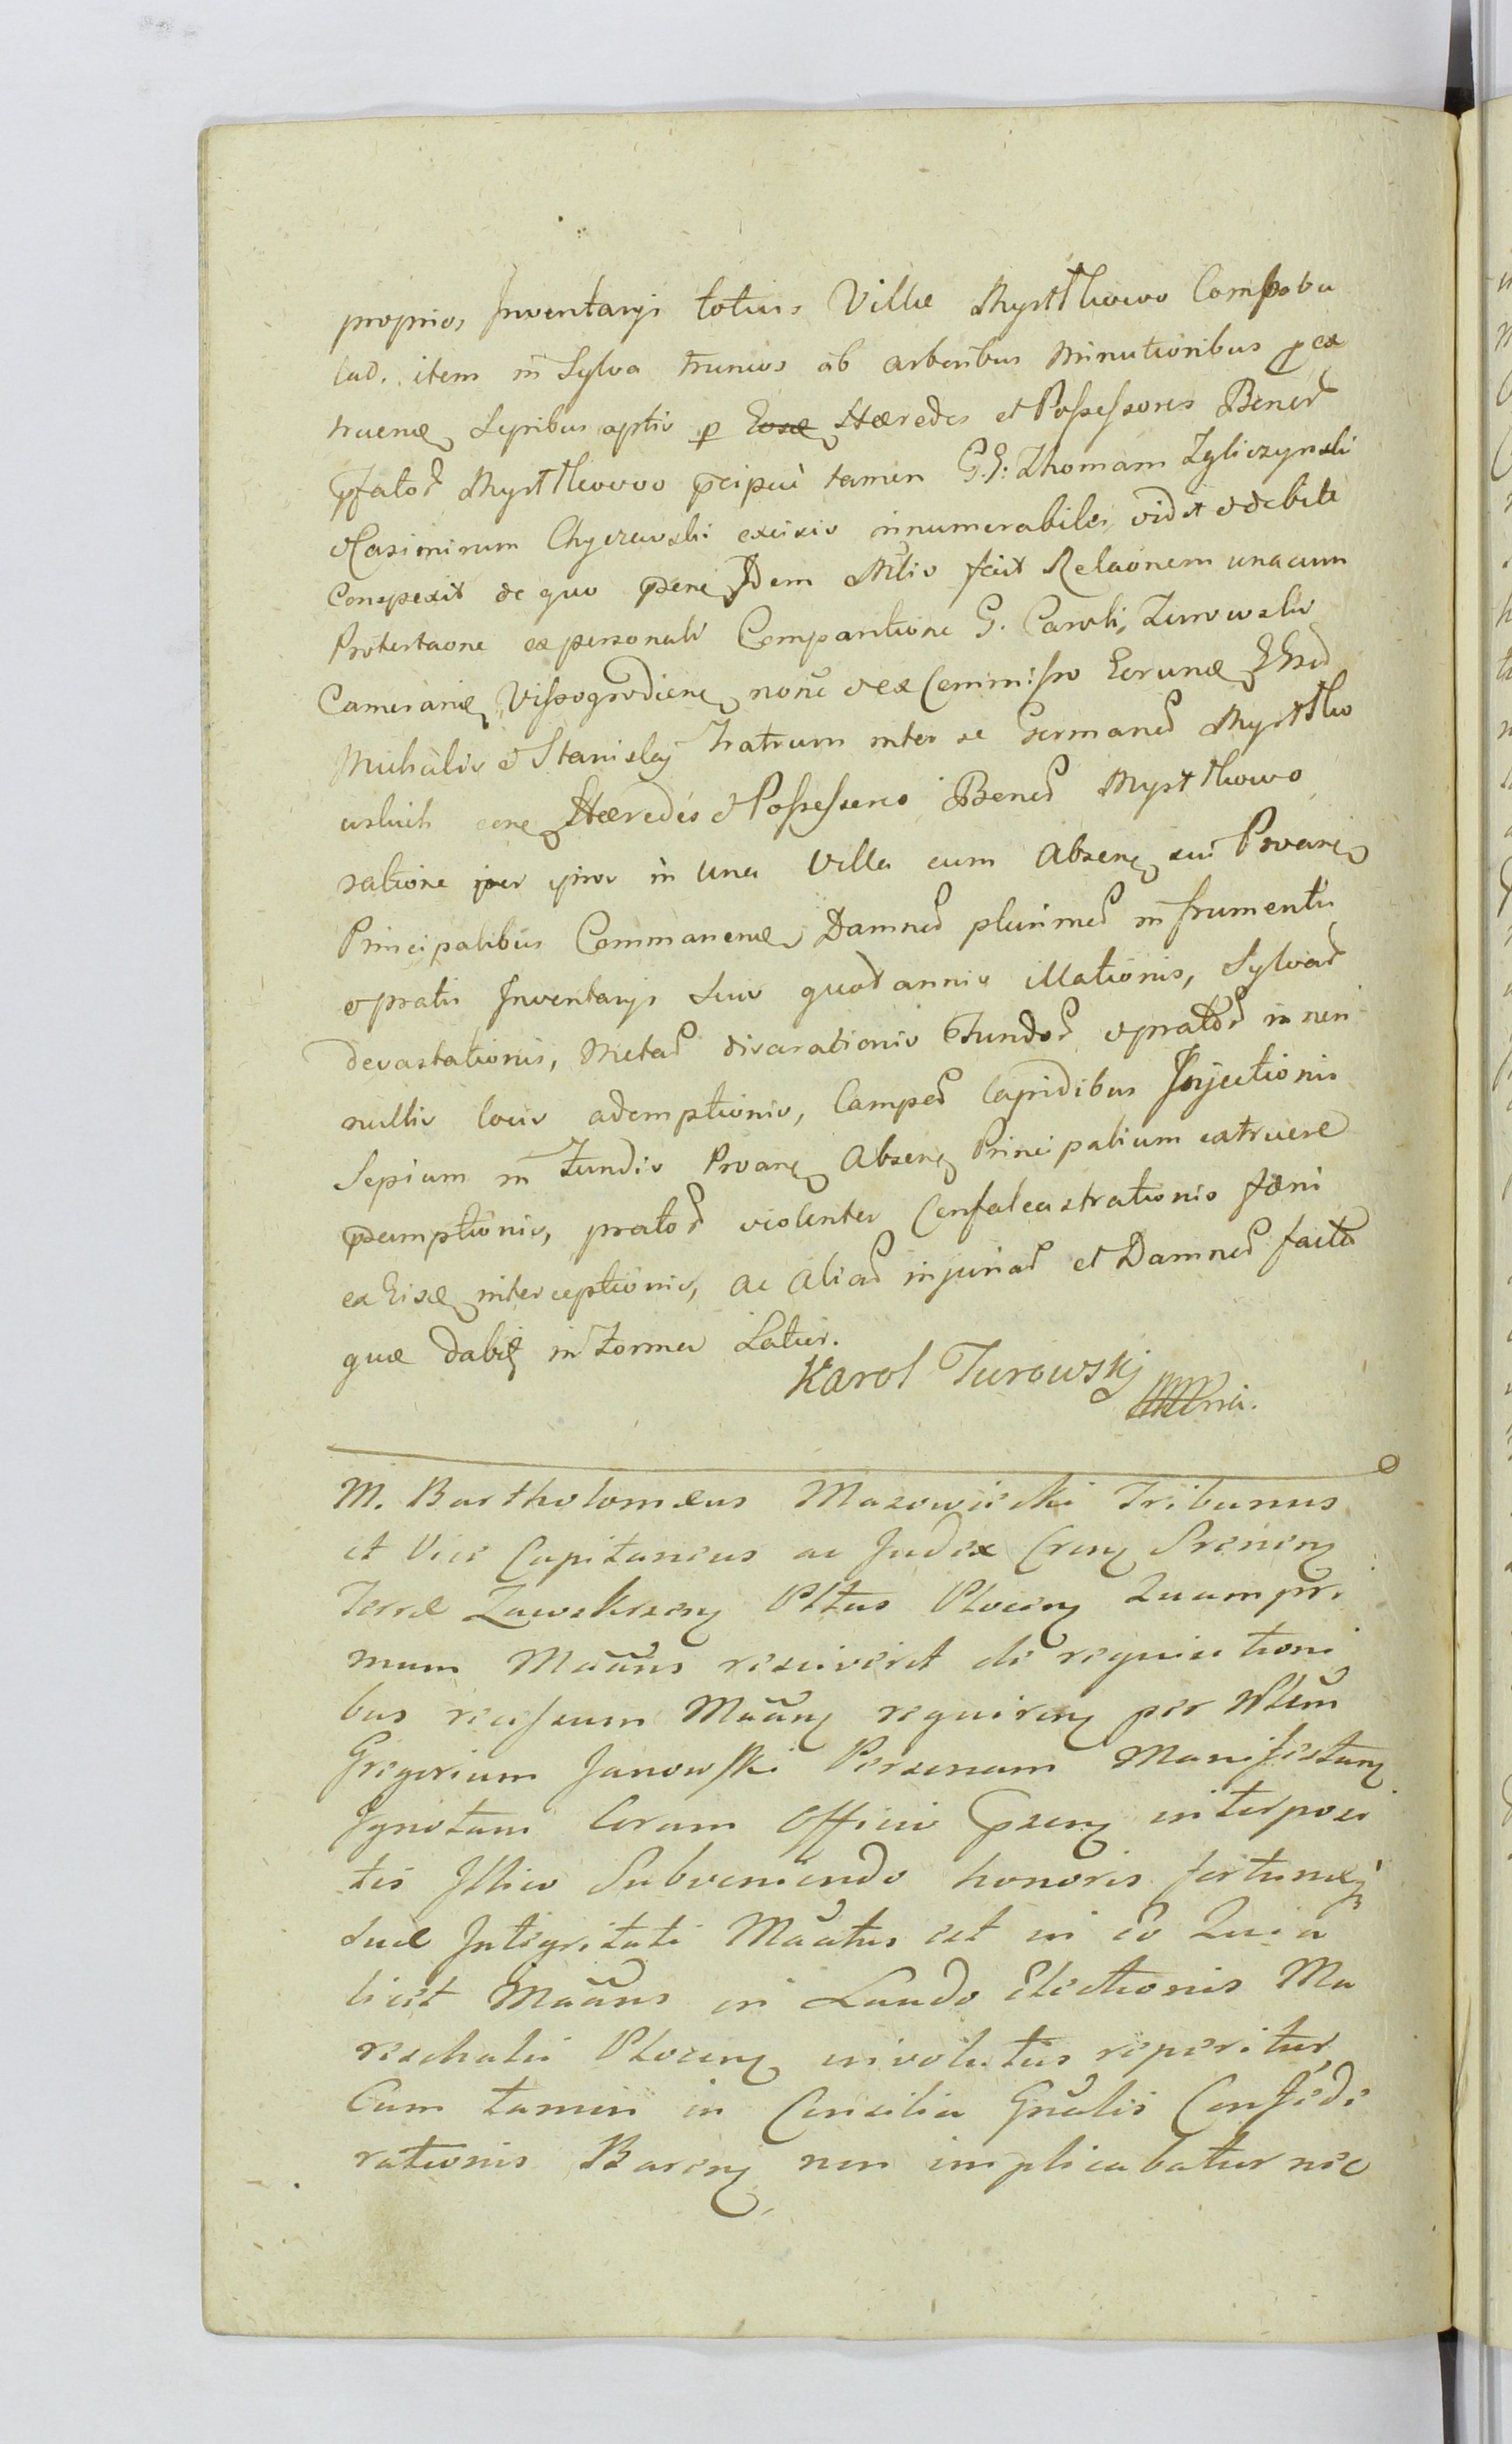 proprios Inventarijs totius Villæ Mystkowo Compobu
lad. item in Sylva truncos ab arboribus minutioribus p ex
truenæ Sepibus aptis p Eosd Hæredes et Possessores Bonor
pfator Mystkowo pcipue tamen G.G. Thomam Zgliczynski
Casimirum Chyczewski excisis innumerabiles vidit et debite
Conspexit de quo psene Idem Mlis fecit Relaonem unacum
Protestaone ex personali Comparitione G. Caroli Turowski
Camerarij Vissogrodiens noñe et ex Commisso Eorund GGnd
Michalis et Stanislaj Fratrum inter se Germanor Mystko
wskich Hæredes et Possessores Bonor Mystkowo
ratione in una Villa cum Absen sui Provan
Principalibus Commanend Damnor plurimor in frumentis
et pratis Inventarijs suis quotannis illationis, Sylvar
devastationis, Metar disarationis Fundor et prator in non
nullis locis ademptionis, Campor lapidibus Injectionis
Sepium in Fundis Provan Absen Principalium extruere
psumptionis, prator violenter Confalcastrationis fæni
ex Eisd interceptionis, ac aliar injuriar et Damnor facta
quæ dabit in Forma Latior.
Karol Turowskj
mria.
M. Bartholomæus Mazowiecki Tribunus
et Vice Capitaneus ac Judex Cren Srenen
Terræ Zawskrzen Pltus Plocen Quampri
mum Maãns resciverit de requisitioni
bus recessum Maãn requiren per Mlem
Gregorium Janowski Personam Manifestan
Ignotam Coram Officio psen interposi
tis Illico Subveniendo honoris fortunæq
suæ Integritati Maãtus est in eo Quia
licet Maãns in Laudo Electionis Ma
reschalis Plocen involutus reperitur
Cum tamen in Consilia Gñalis Confæde
rationis Baren non implicabatur nec